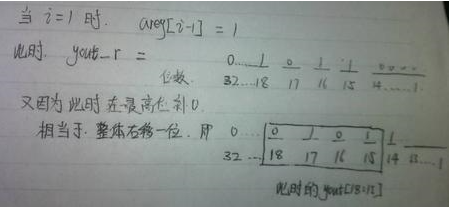 当 i=1 时. areg[i-1] = 1
此时. yout_r = 0 ... 1 0 1 1
位数. 32...18 17 16 15 14......1
又因为此时在最高位补0.
相当于.整体右移一位. 即 0... 0 1 0 1 1
32... 18 17 16 15 14 13....1
此时的 yout[18:15]